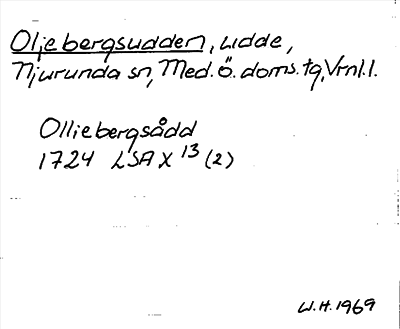 Oljebergsudden, udde,
Njurunda sn, Med. ö. doms. tg, Vrnl. l.
Olliebergsådd
1724 LSA X 13 (2)
W.H. 1969